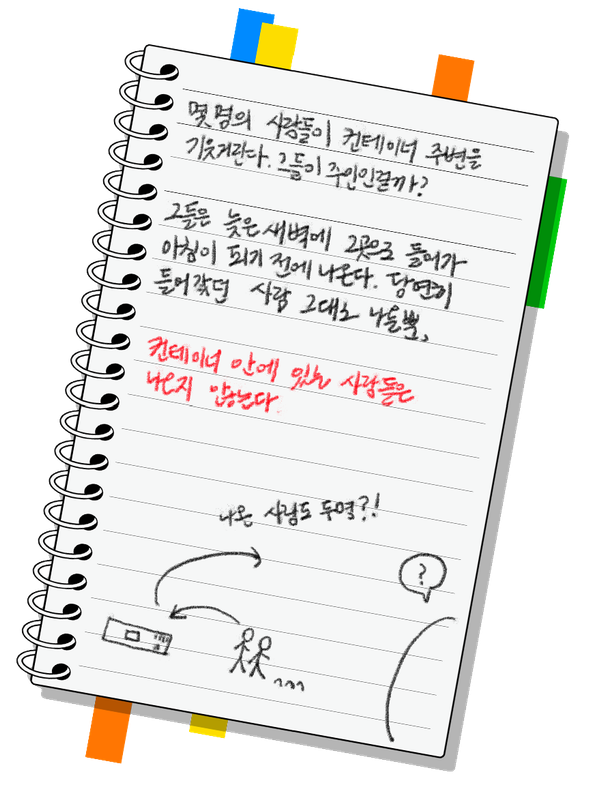 몇 명의 사람들이 컨테이너 주변을
기웃거린다. 그들이 주인인걸까?
그들은 늦은 새벽에 그곳으로 들어가
아침이 되기 전에 나온다. 당연히
들어갔던 사람 그대로 나올뿐,
컨테이너 안에 있는 사람들은
나오지 않는다.
나온 사람도 두명?!
?